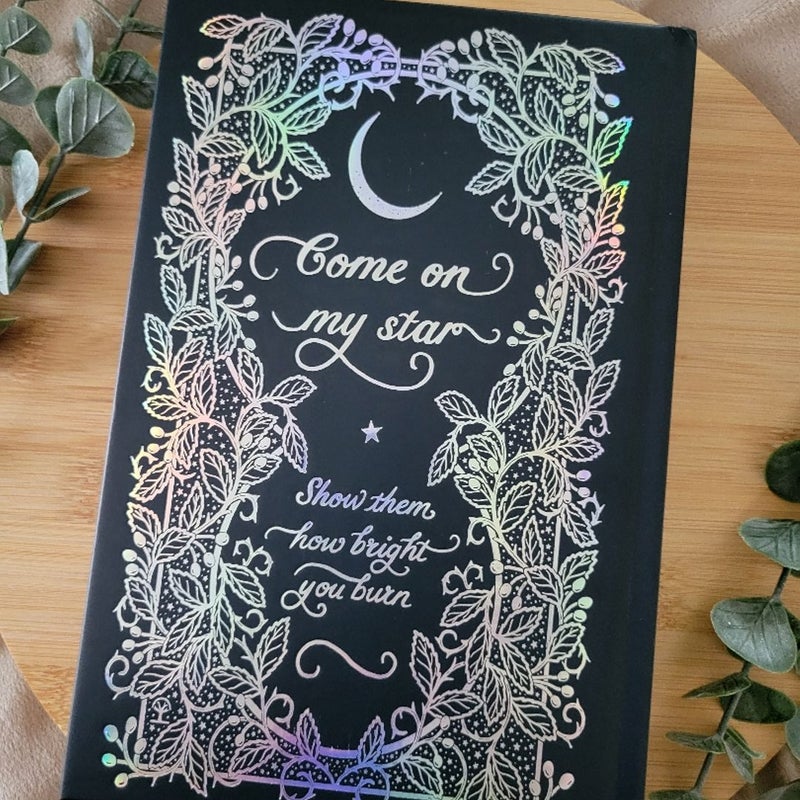 Come on
my star
Show them
how bright
you burn